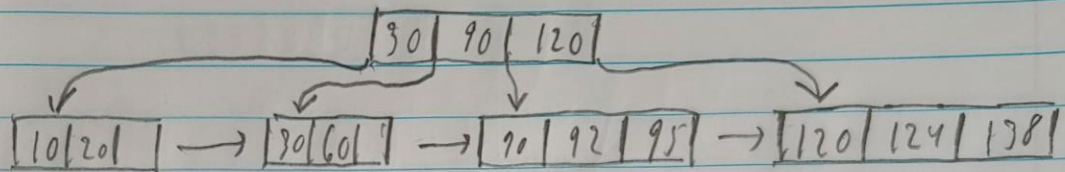 30 90 120
10 20 30 60 90 92 95 120 124 138